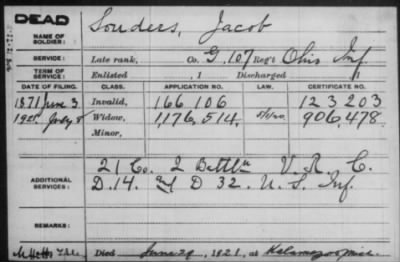 DEAD
NAME OF SOLDIER: Souders, Jacob
SERVICE: Late rank, Co. G, 107 Reg't Ohio Inf
TERM OF SERVICE: Enlisted , 1 Discharged , 1
DATE OF FILING. CLASS. APPLICATION NO. LAW. CERTIFICATE NO.
1871 June 3 Invalid, 166,106 123,203
1921 July 8 Widow, 1,176,514, 5/1/20 906,478.
Minor,
ADDITIONAL SERVICES: 21 Co. 2 Battln V. R. C.
D. 14. and D 32. U. S. Inf.
REMARKS:
Died June 29, 1921, at Kalamazoo Mich.